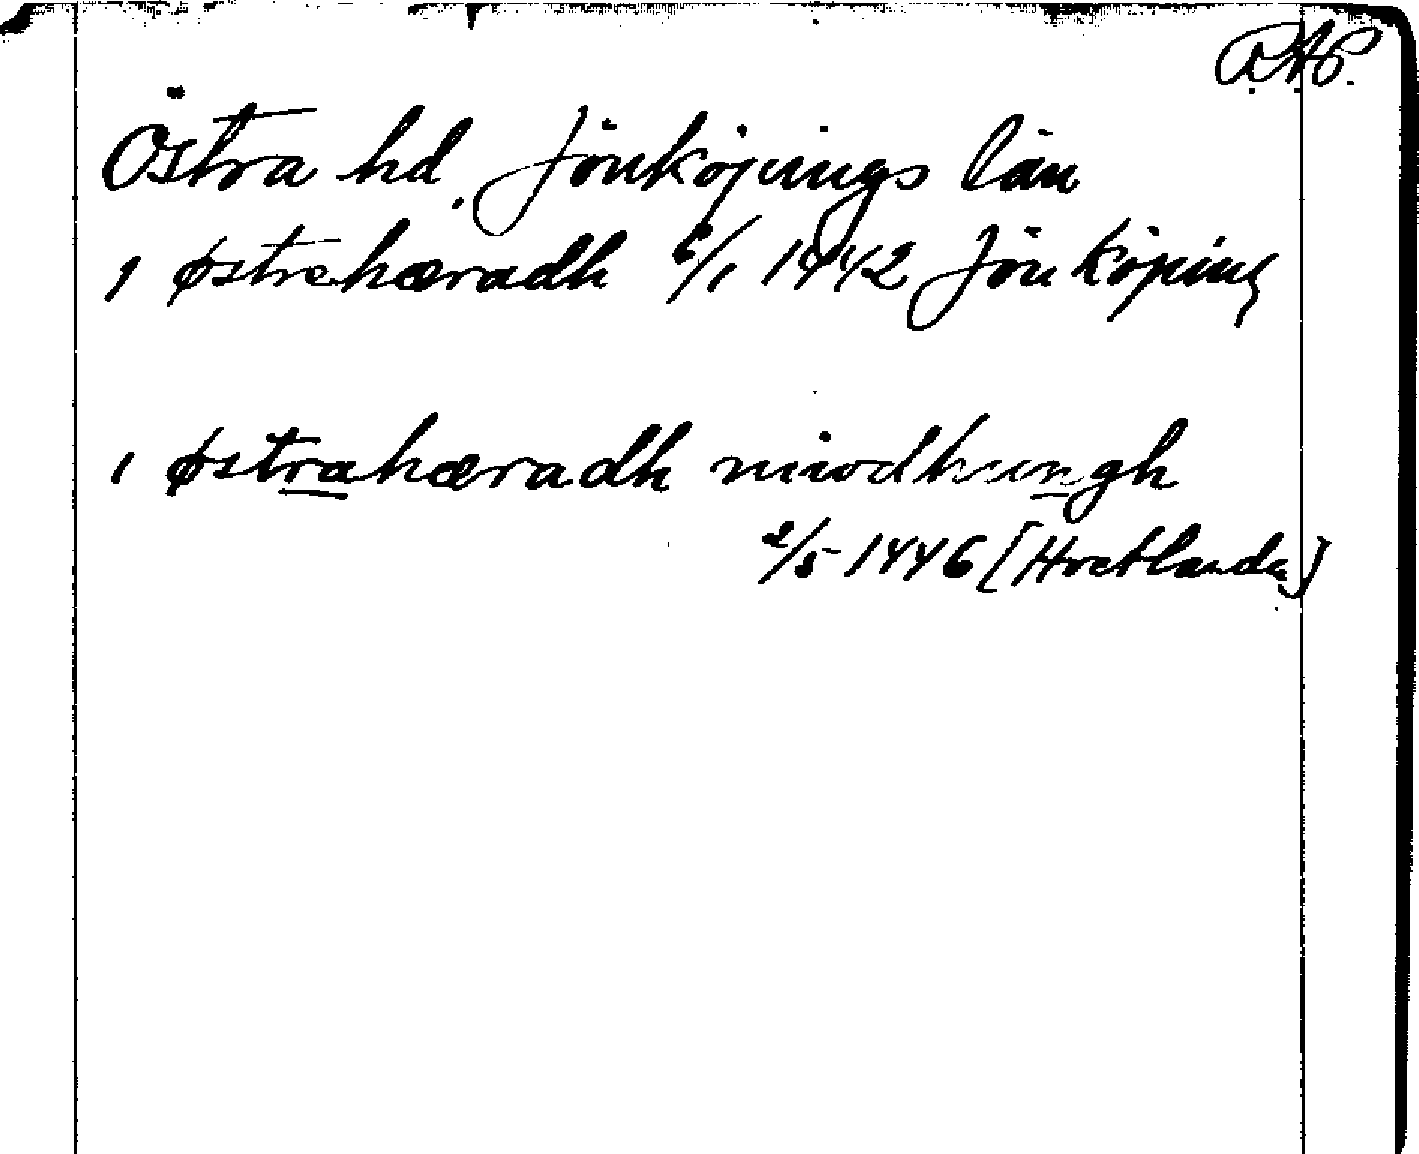 R.A.P.
Östra hd. Jönköpings län
i østrehæradh 6/1 1442 Jönköping
i østrahæradh niwdhungh
2/5 1446 [Hvetlanda]